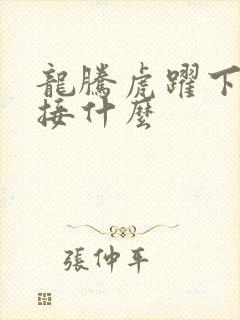 龍騰虎躍下
接什麼
張仲平